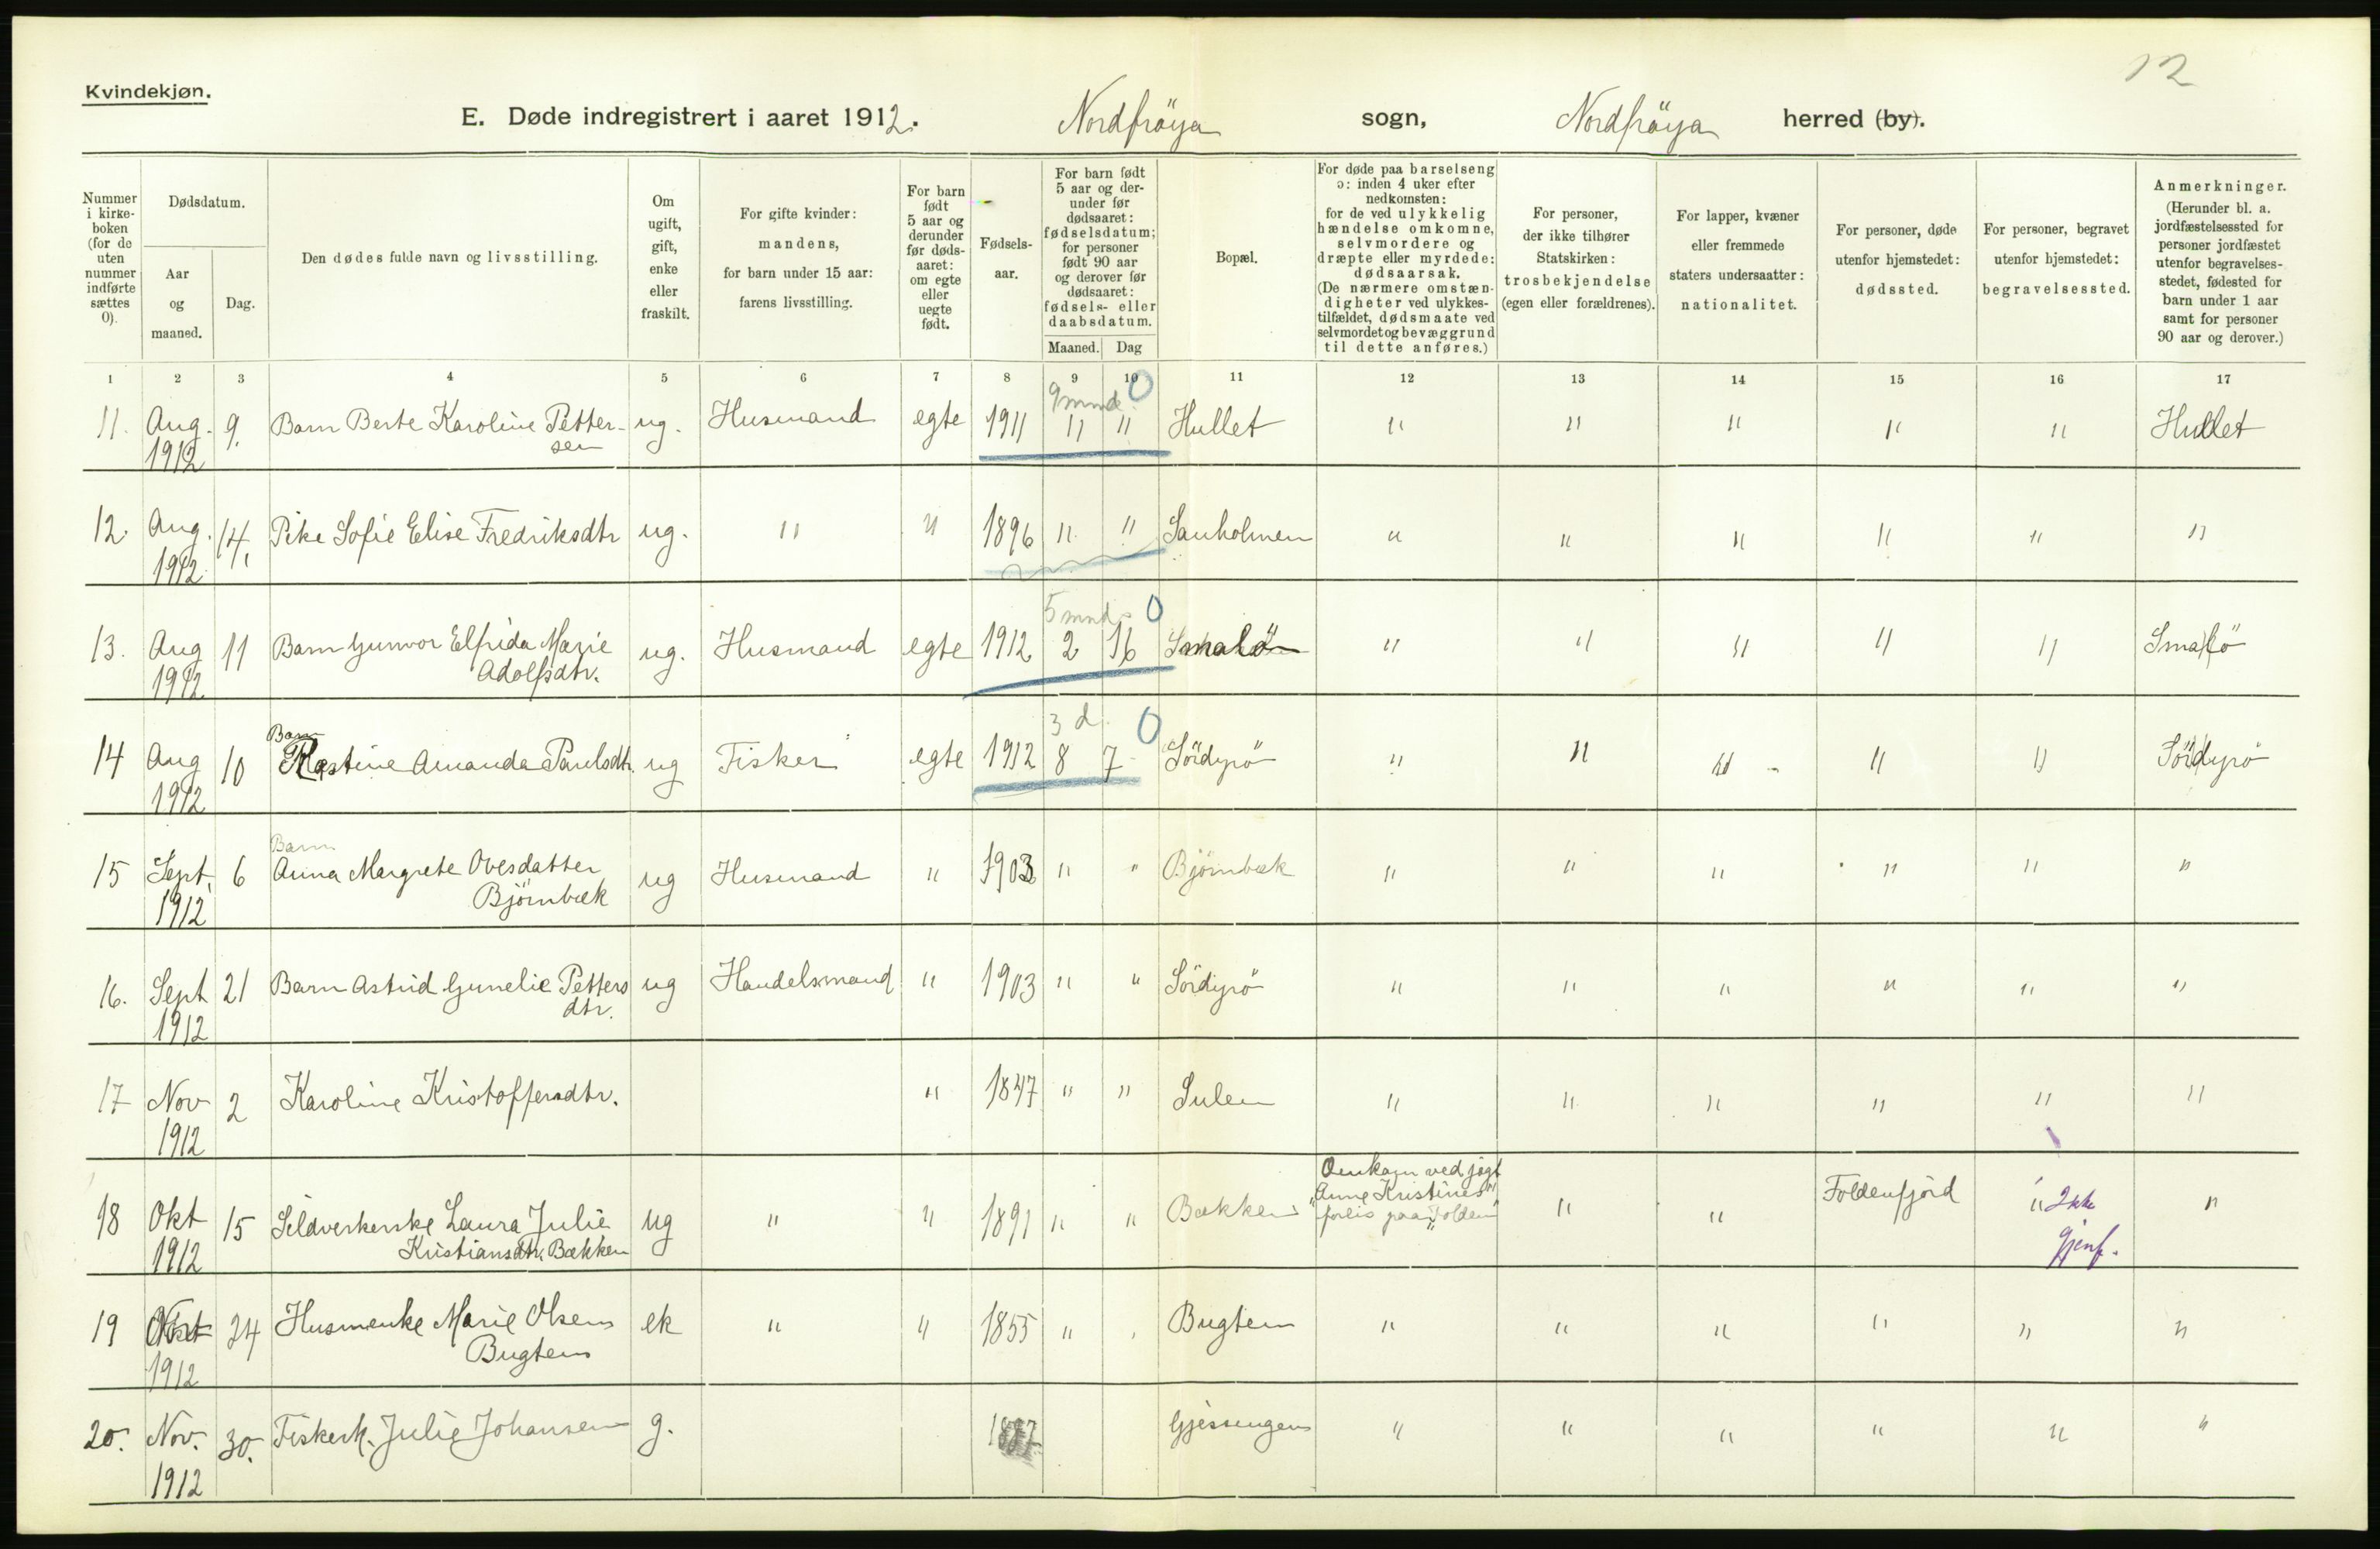 12
Kvindekjøn.
E. Døde indregistrert i aaret 1912. Nordfröya sogn, Nordfröya herred (by).
Nummer i kirke-boken (for de uten nummer indførte sættes 0).
Dødsdatum.
Aar og maaned.
Dag.
Den dødes fulde navn og livsstilling.
Om ugift, gift, enke eller fraskilt.
For gifte kvinder: mandens, for barn under 15 aar: farens livsstilling.
For barn født 5 aar og derunder før døds-aaret: om egte eller uegte født.
Fødsels-aar.
For barn født 5 aar og der-under før dødsaaret: fødselsdatum; for personer født 90 aar og derover før dødsaaret: fødsels- eller daabsdatum.
Maaned. Dag
Bopæl.
For døde paa barselseng ɔ: inden 4 uker efter nedkomsten: for de ved ulykkelig hændelse omkomne, selvmordere og dræpte eller myrdede: dødsaarsak. (De nærmere omstæn-digheter ved ulykkes-tilfældet, dødsmaate ved selvmordet og bevæggrund til dette anføres.)
For personer, der ikke tilhører Statskirken: trosbekjendelse (egen eller forældrenes).
For lapper, kvæner eller fremmede staters undersaatter: nationalitet.
For personer, døde utenfor hjemstedet: dødssted.
For personer, begravet utenfor hjemstedet: begravelsessted.
Anmerkninger. (Herunder bl. a. jordfæstelsessted for personer jordfæstet utenfor begravelses-stedet, fødested for barn under 1 aar samt for personer 90 aar og derover.)
1 2 3 4 5 6 7 8 9 10 11 12 13 14 15 16 17
9 mnd. 0
11. Aug. 9. Barn Berte Karoline Petter- ug. Husmand egte 1911 " " Hullet " " " " " Hullet
1912 sen
12. Aug. 14. Pike Sofie Elise Fredriksdtr ug. " " 1896 " " Sauholmen " " " " " "
1912.
5 mnd. 0
13. Aug 11 Barn Gunvor Elfrida Marie ug. Husmand egte 1912 2 16 Smalö " " " " " Smalö
1912 Adolfsdtr.
Barn 3 d. 0
14 Aug 10 Amanda Paulsdtr. ug Fisker egte 1912 8 7 Sördyrö " " " " " Sördyrö
1912
Barn
15 Sept. 6 Anna Margrete Ovesdatter ug Husmand " 1903 " " Björnbæk " " " " " "
1912 Björnbæk
16. Sept 21 Barn Astrid Gunelie Petters ug Handelsmand " 1903 " " Sördyrö " " " " " "
1912 dtr.
17 Nov 2 Karoline Kristoffersdtr. " 1847 " " Sulen " " " " " "
1912
Omkom ved jagt
18 Okt 15 Sildverkerske Laura Julie ug " " 1891 " " Bækken "Anne Kristines" " " Foldenfjord " Ikke "
1912 Kristiansdtr. Bækken forlis paa "Folden" gjenf.
19 Okt 24 Husmenke Marie Olsen ek " " 1855 " " Bugten " " " " " "
1912 Bugten
20. Nov. 30. Fiskerk. Julie Johansen g. Gjessingen " " " " " "
1912